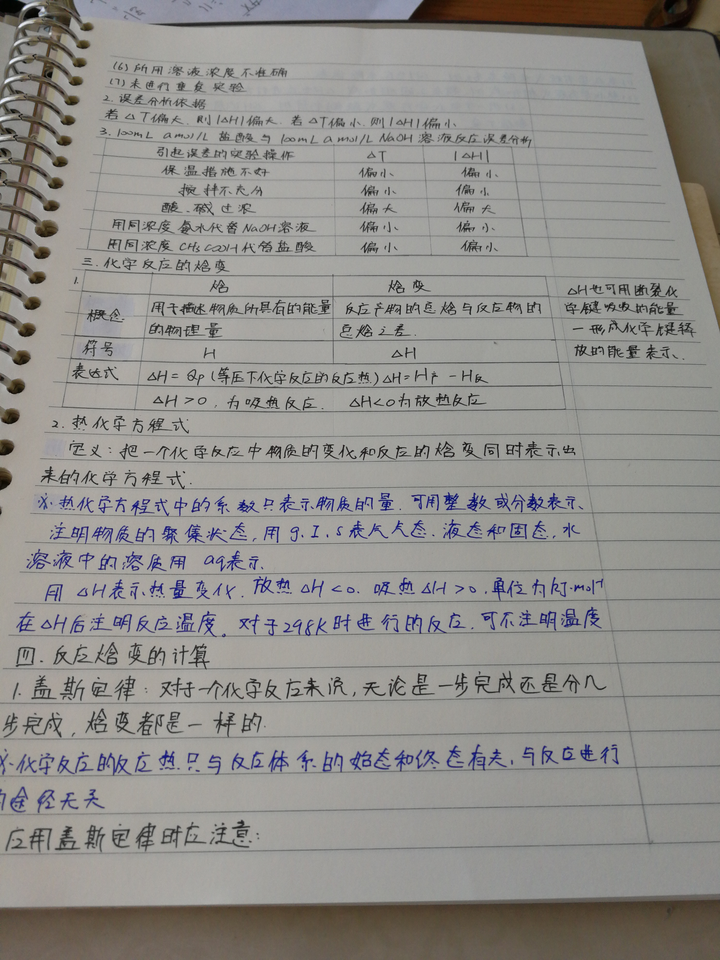 (6) 所用溶液浓度不准确
(7) 未进行重复实验
2. 误差分析依据
若△T偏大,则|△H|偏大. 若△T偏小,则|△H|偏小
3. 100mL a mol/L 盐酸与 100mL a mol/L NaOH 溶液反应误差分析
引起误差的实验操作 △T |△H|
保温措施不好 偏小 偏小
搅拌不充分 偏小 偏小
酸、碱过浓 偏大 偏大
用同浓度氨水代替NaOH溶液 偏小 偏小
用同浓度CH₃COOH代替盐酸 偏小 偏小
三. 化学反应的焓变
1. 焓 焓变
概念 用于描述物质所具有的能量 反应产物的总焓与反应物的
的物理量 总焓之差.
符号 H △H
表达式 △H = Qp (等压下化学反应的反应热) △H = H产 - H反
△H>0, 为吸热反应. △H<0为放热反应
△H也可用断裂化
学键吸收的能量
—形成化学键释
放的能量表示、
2. 热化学方程式
定义:把一个化学反应中物质的变化和反应的焓变同时表示出
来的化学方程式.
※热化学方程式中的系数只表示物质的量. 可用整数或分数表示、
注明物质的聚集状态,用 g. l. s 表示气态. 液态和固态,水
溶液中的溶质用 aq表示.
用 △H表示热量变化. 放热△H<0. 吸热△H>0. 单位为kJ·mol⁻¹
在△H后注明反应温度。对于298K时进行的反应. 可不注明温度
四. 反应焓变的计算
1. 盖斯定律:对于一个化学反应来说,无论是一步完成还是分几
步完成,焓变都是一样的.
※化学反应的反应热只与反应体系的始态和终态有关,与反应进行
途径无关
应用盖斯定律时应注意: